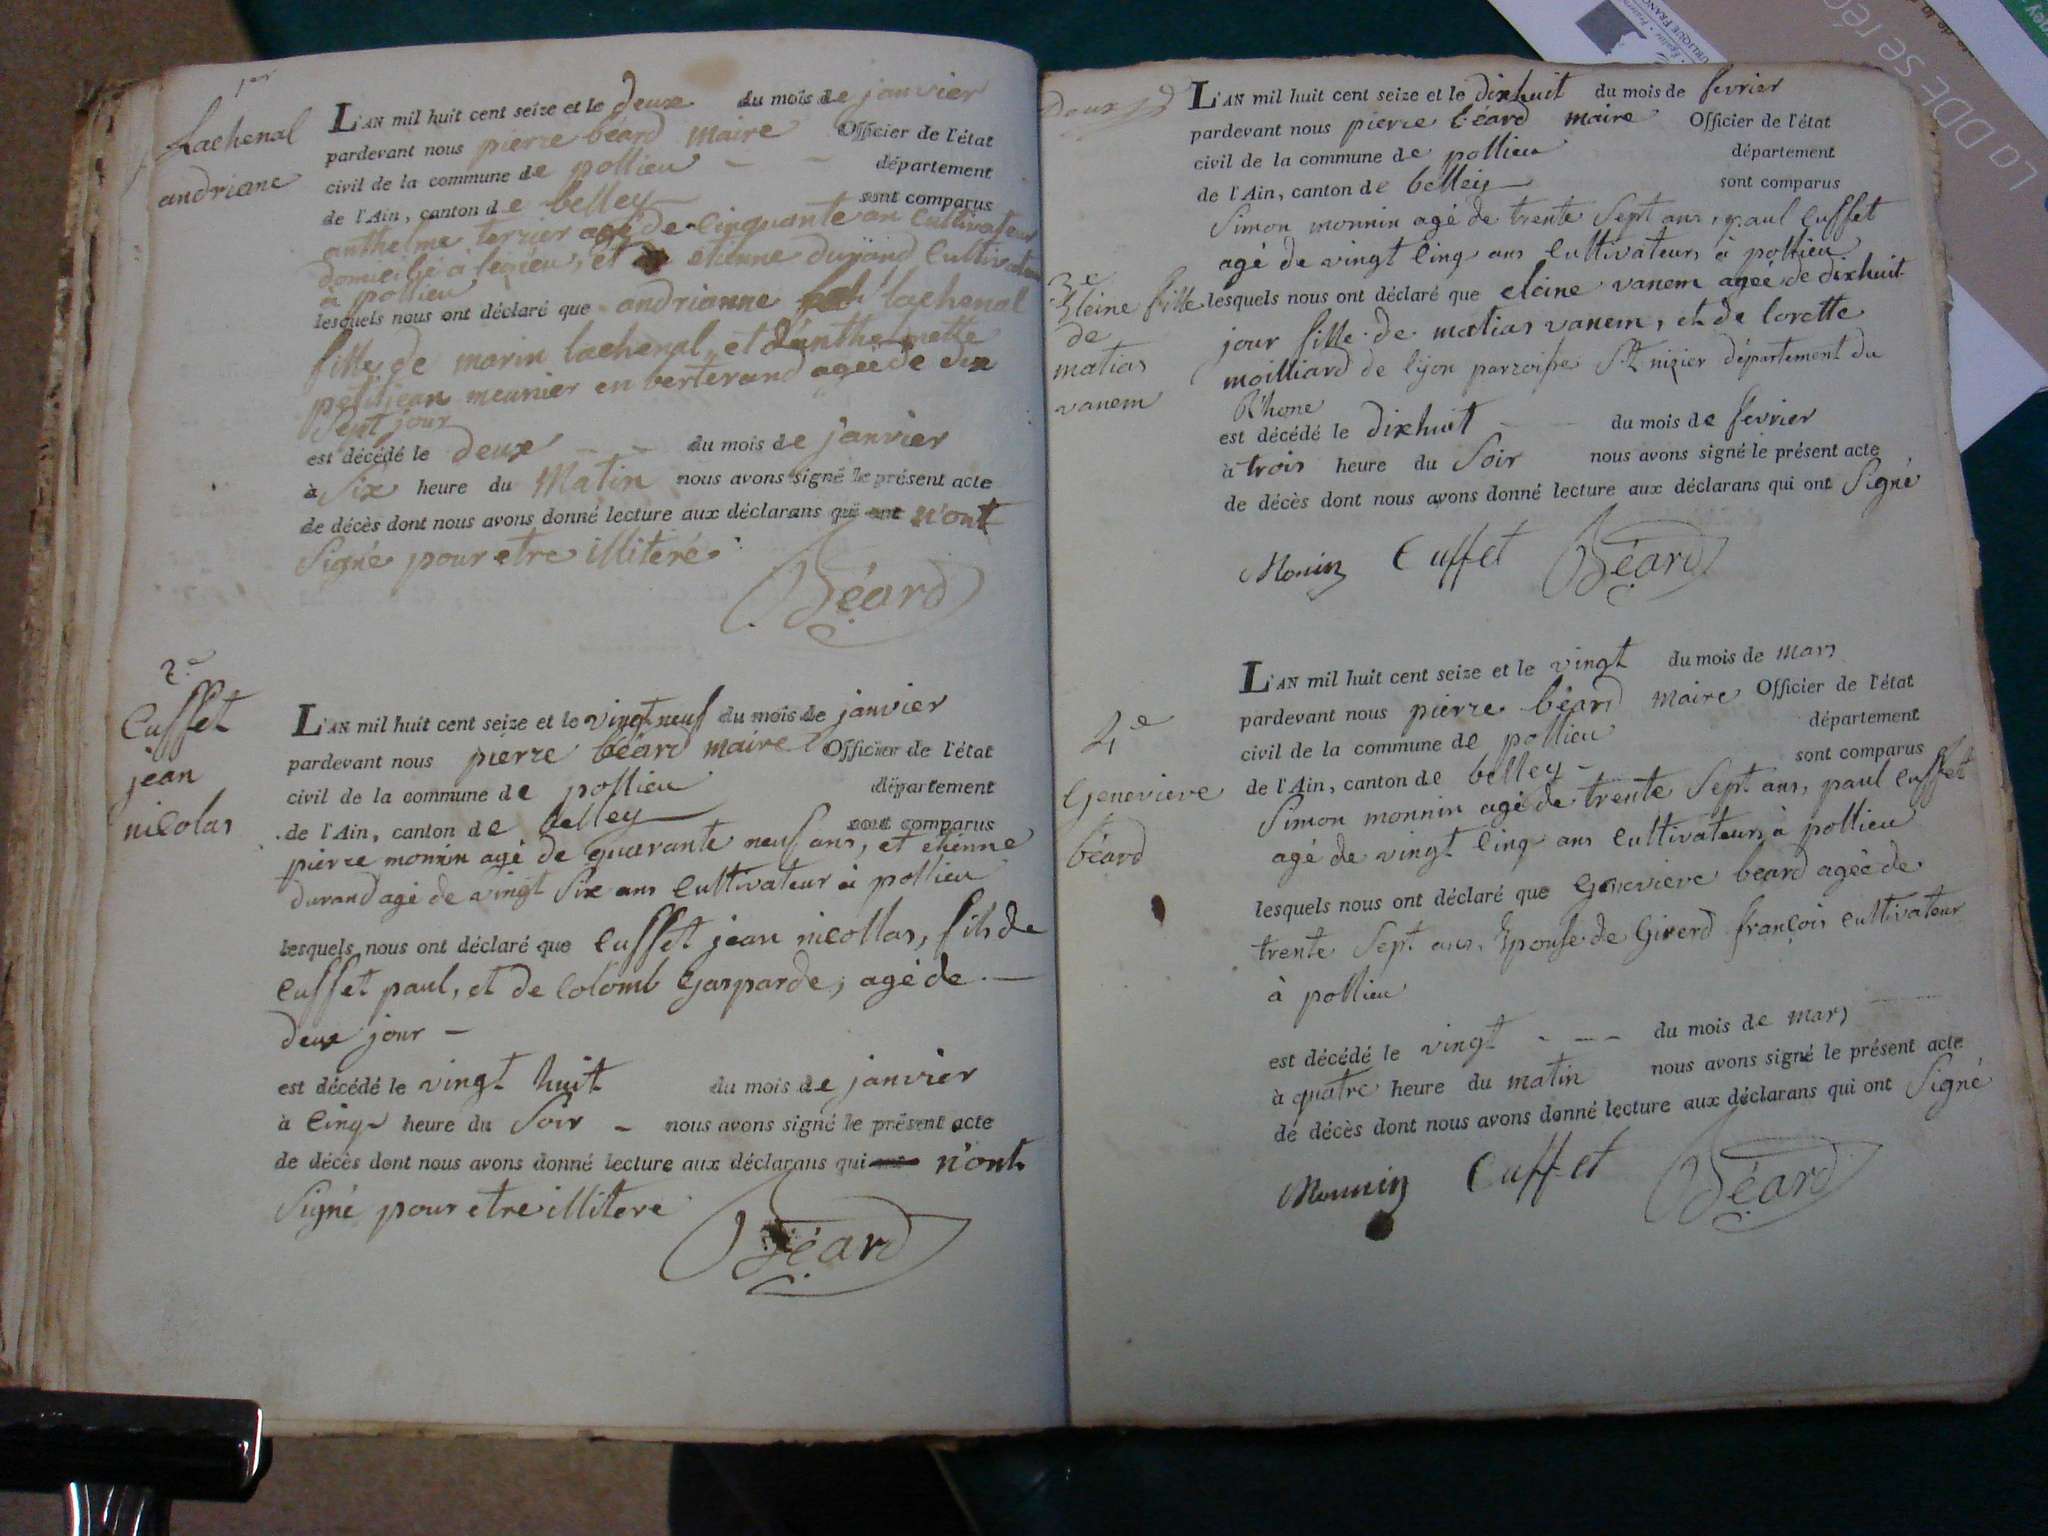 1er
Lachenal
andriane
L'AN mil huit cent seize et le deux du mois de janvier
pardevant nous pierre béard maire Officier de l'état
civil de la commune de pollieu département
de l'Ain, canton de belley sont comparus
anthelme terrier agé de Cinquante an Cultivateur
domcilié à et etienne durand Cultivateur
à pollieu
lesquels nous ont déclaré que andrianne lachenal
fille de marin lachenal, et d'anthelmette
petitjean meunier en berterand agée de dix
Sept jour
est décédé le deux du mois de janvier
à Six heure du Matin nous avons signé le présent acte
de décès dont nous avons donné lecture aux déclarans qui n'ont
Signé pour etre illiteré.
Béard
2e
Cuffet
jean
nicolas
L'AN mil huit cent seize et le vingt neuf du mois de janvier
pardevant nous pierre béard maire Officier de l'état
civil de la commune de pollieu département
de l'Ain, canton de belley sont comparus
pierre monnin agé de quarante neuf ans, et etienne
durand agé de vingt Six ans Cultivateur à pollieu
lesquels nous ont déclaré que Cuffet jean nicollas, fils de
Cuffet paul, et de Colomb Gasparde, agé de
deux jour
est décédé le vingt huit du mois de janvier
à Cinq heure du Soir nous avons signé le présent acte
de décès dont nous avons donné lecture aux déclarans qui n'ont
Signé pour etre illiteré
Béard
L'AN mil huit cent seize et le dixhuit du mois de fevrier
pardevant nous pierre béard maire Officier de l'état
civil de la commune de pollieu département
de l'Ain, canton de belley sont comparus
Simon monnin agé de trente Sept ans, paul Cuffet
agé de vingt Cinq ans Cultivateurs à pollieu
3e
fille
de
matias
vanem
lesquels nous ont déclaré que eleine vanem agée de dixhuit
jour fille de matias vanem, et de lorette
moilliard de lyon parroisse St nizier département du
Rhone
est décédé le dixhuit du mois de fevrier
à trois heure du Soir nous avons signé le présent acte
de décès dont nous avons donné lecture aux déclarans qui ont Signé
Monin Cuffet Béard
4e
Genevieve
béard
L'AN mil huit cent seize et le vingt du mois de mars
pardevant nous pierre béard maire Officier de l'état
civil de la commune de pollieu département
de l'Ain, canton de belley sont comparus
Simon monnin agé de trente Sept ans, paul Cuffet
agé de vingt Cinq ans Cultivateurs à pollieu
lesquels nous ont déclaré que Genevieve beard agée de
trente Sept ans, Epouse de Girerd françois Cultivateur
à pollieu
est décédé le vingt du mois de mars
à quatre heure du matin nous avons signé le présent acte
de décès dont nous avons donné lecture aux déclarans qui ont Signé
Monnin Cuffet Béard
La DDE se